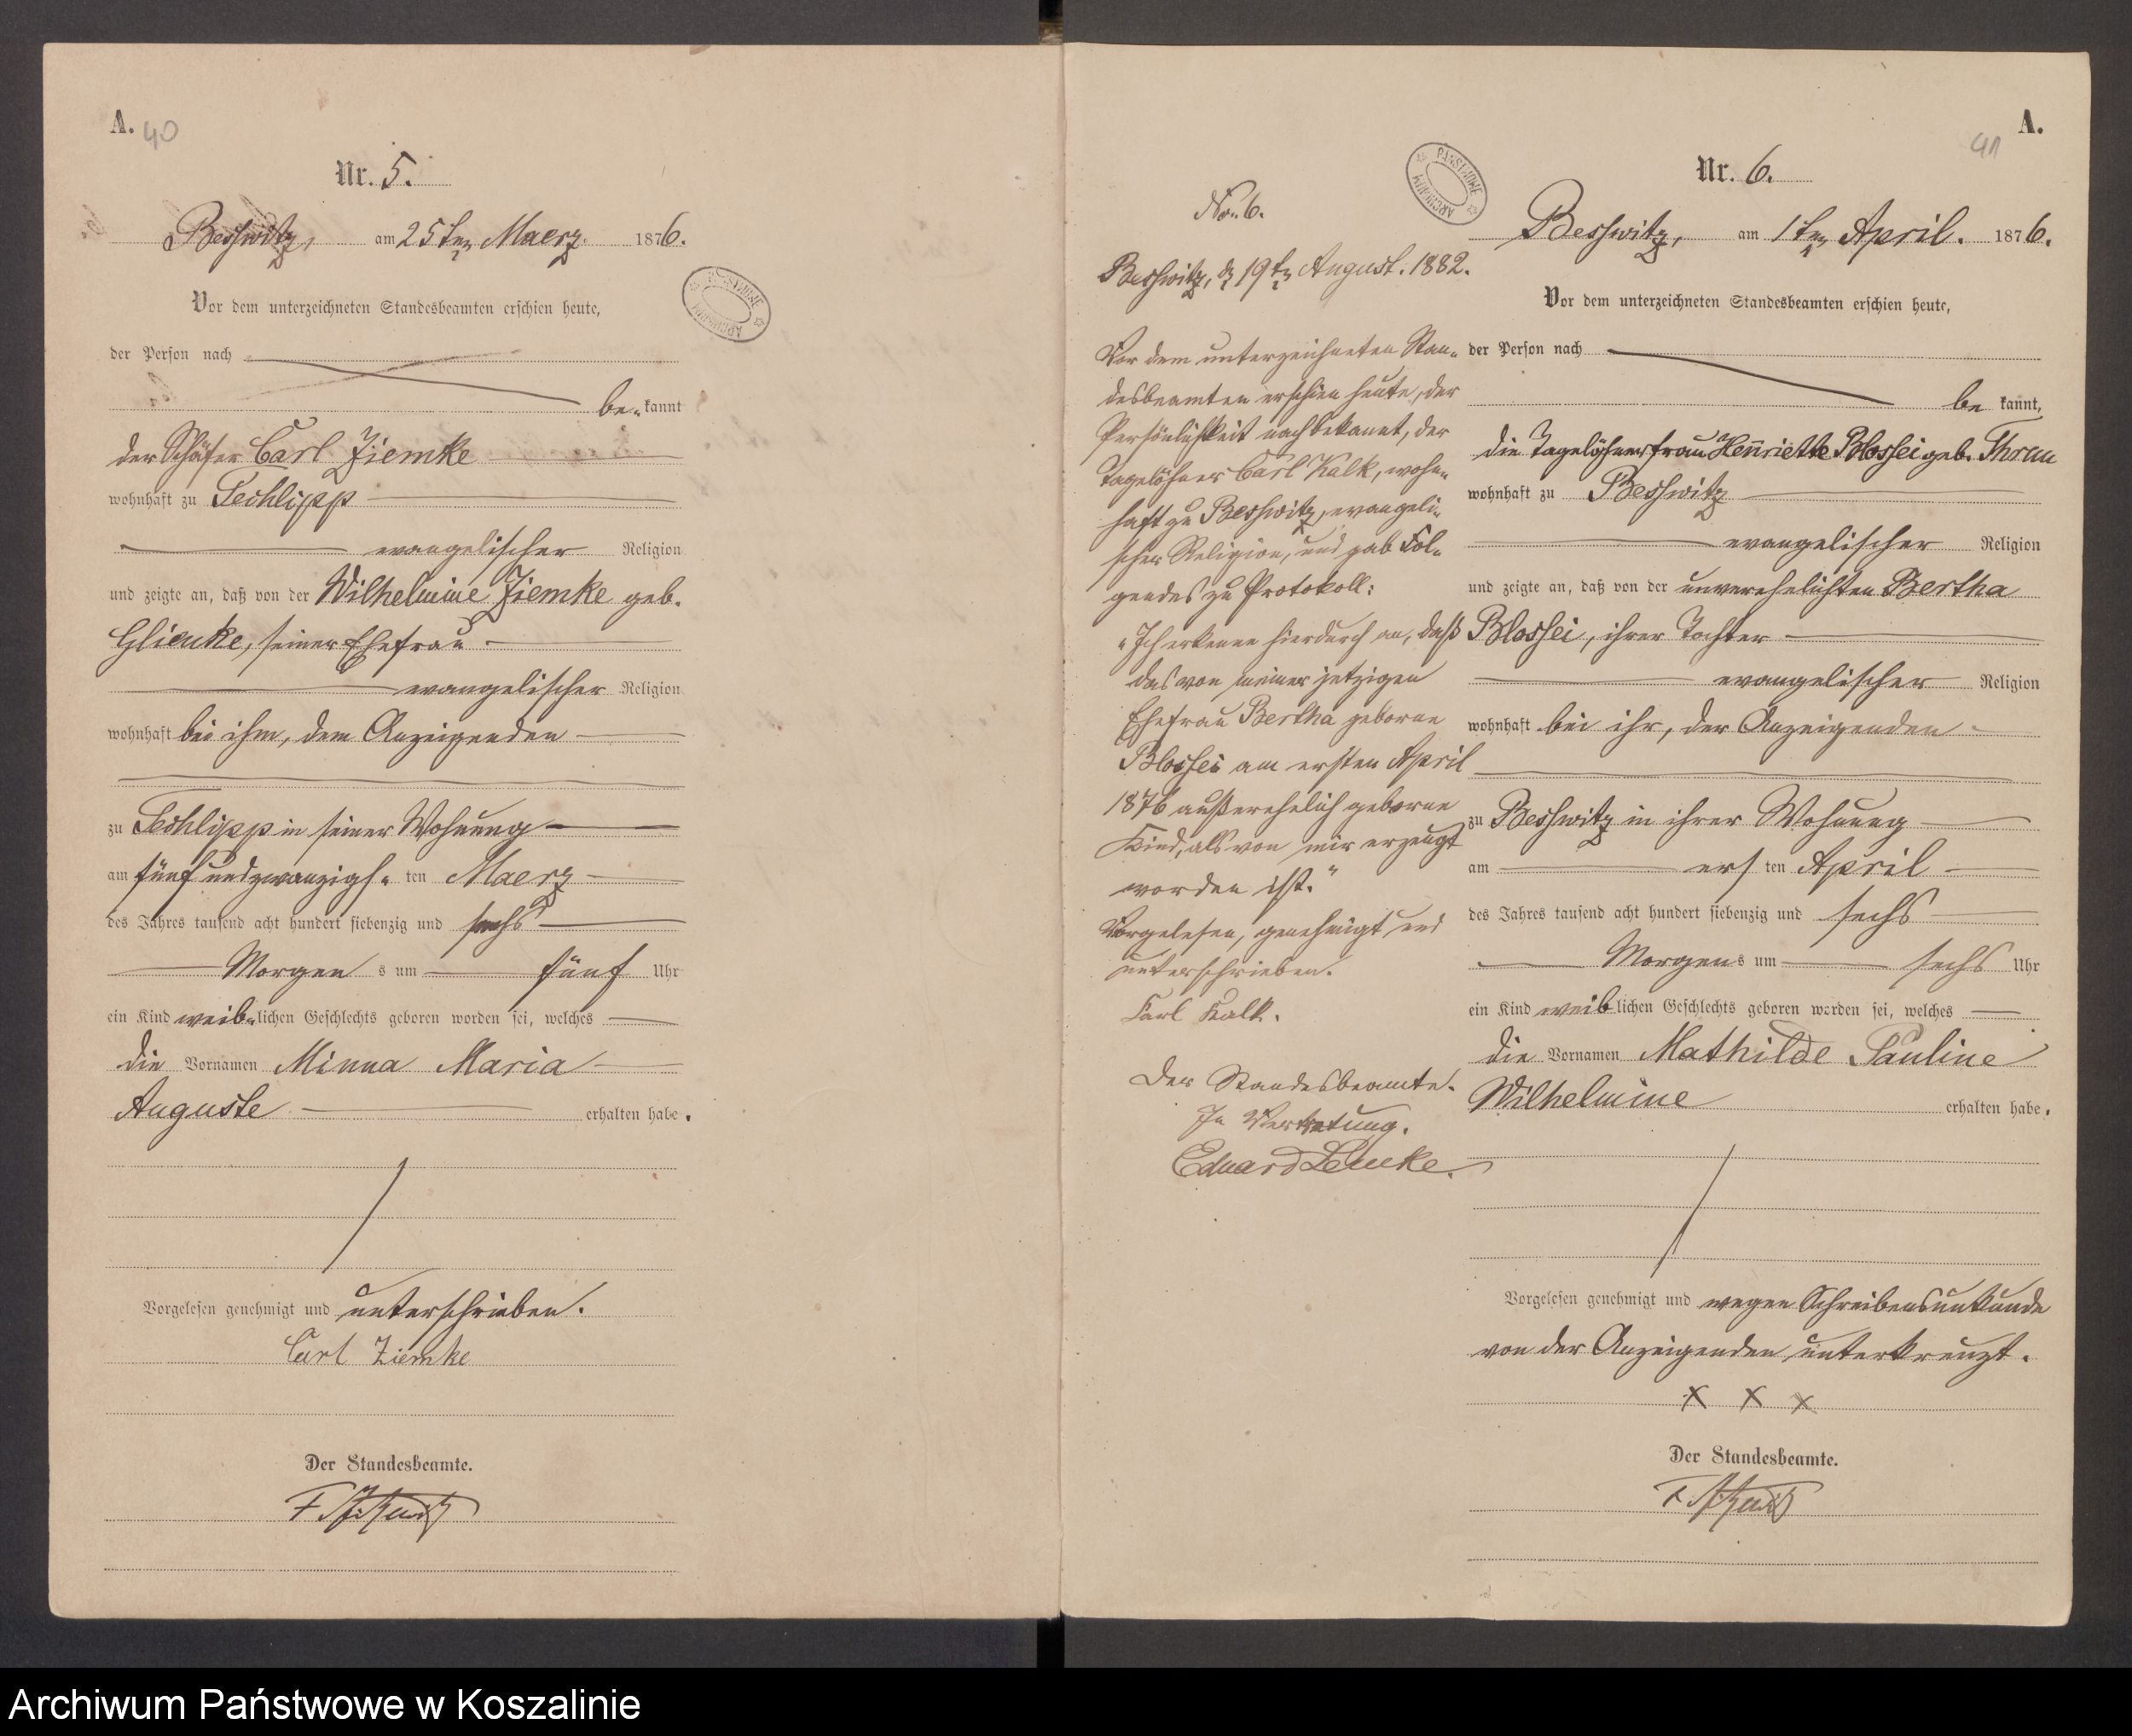 A. 40
Nr. 5.
Besswitz, am 25ten Maerz 1876.
Vor dem unterzeichneten Standesbeamten erschien heute,
der Person nach
be„kannt
der Schäfer Carl Ziemke
wohnhaft zu Techlipp
evangelischer Religion
und zeigte an, daß von der Wilhelmine Ziemke geb.
Glienke, seiner Ehefrau
evangelischer Religion
wohnhaft bei ihm, dem Anzeigenden
zu Techlipp in seiner Wohnung
am fünf und zwanzigs„ten Maerz
des Jahres tausend acht hundert siebenzig und sechs
Morgens um fünf Uhr
ein Kind weib„lichen Geschlechts geboren worden sei, welches
die Vornamen Minna Maria
Auguste erhalten habe.
Vorgelesen genehmigt und unterschrieben.
Carl Ziemke
Der Standesbeamte.
PAŃSTWOWE ARCHIWUM
No. 6.
Besswitz, d 19ten August. 1882.
Vor dem unterzeichneten Stan„
desbeamten erschien heute, der
Persönlichkeit nach bekannt, der
Tagelöhner Carl Kalk, wohn„
haft zu Besswitz, evangeli„
scher Religion, und gab Fol„
gendes zu Protokoll:
„Ich erkenne hierdurch an, daß
das von meiner jetzigen
Ehefrau Bertha geborne
Blossei am ersten April
1876 außerehelich geborne
Kind, als von mir erzeugt
worden ist."
Vorgelesen, genehmigt und
unterschrieben.
Karl Kalk.
Der Standesbeamte.
In Vertretung.
Eduard Lemke.
PAŃSTWOWE ARCHIWUM
A.
41
Nr. 6.
Besswitz, am 1ten April. 1876.
Vor dem unterzeichneten Standesbeamten erschien heute,
der Person nach
be kannt,
die Tagelöhnerfrau Henriette Blossei geb. Thrun
wohnhaft zu Besswitz
evangelischer Religion
und zeigte an, daß von der unverehelichten Bertha
Blossei, ihrer Tochter
evangelischer Religion
wohnhaft bei ihr, der Anzeigenden
zu Besswitz in ihrer Wohnung
am ersten April
des Jahres tausend acht hundert siebenzig und sechs
Morgens um sechs Uhr
ein Kind weiblichen Geschlechts geboren worden sei, welches
die Vornamen Mathilde Pauline
Wilhelmine erhalten habe.
Vorgelesen genehmigt und wegen Schreibensunkunde
von der Anzeigenden unterkreuzt.
X X X
Der Standesbeamte.
Archiwum Państwowe w Koszalinie